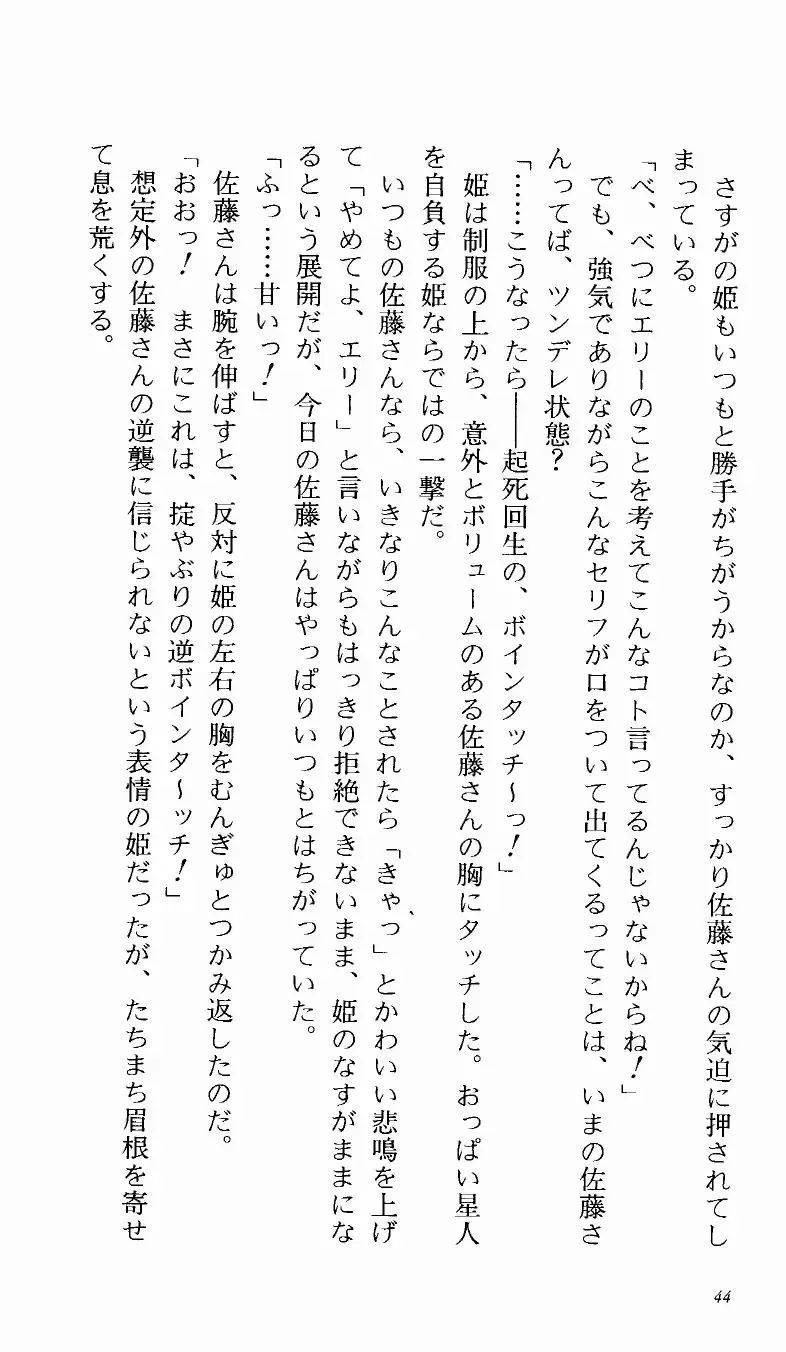 さすがの姫もいつもと勝手がちがうからなのか、すっかり佐藤さんの気迫に押されてし
まっている。
「べ、べつにエリーのことを考えてこんなコト言ってるんじゃないからね！」
でも、強気でありながらこんなセリフが口をついて出てくるってことは、いまの佐藤さ
んってば、ツンデレ状態？
「……こうなったら――起死回生の、ボインタッチ～っ！」
姫は制服の上から、意外とボリュームのある佐藤さんの胸にタッチした。おっぱい星人
を自負する姫ならではの一撃だ。
いつもの佐藤さんなら、いきなりこんなことされたら「きゃっ」とかわいい悲鳴を上げ
て「やめてよ、エリー」と言いながらもはっきり拒絶できないまま、姫のなすがままにな
るという展開だが、今日の佐藤さんはやっぱりいつもとはちがっていた。
「ふっ……甘いっ！」
佐藤さんは腕を伸ばすと、反対に姫の左右の胸をむんぎゅとつかみ返したのだ。
「おおっ！　まさにこれは、掟やぶりの逆ボインタ～ッチ！」
想定外の佐藤さんの逆襲に信じられないという表情の姫だったが、たちまち眉根を寄せ
て息を荒くする。
44